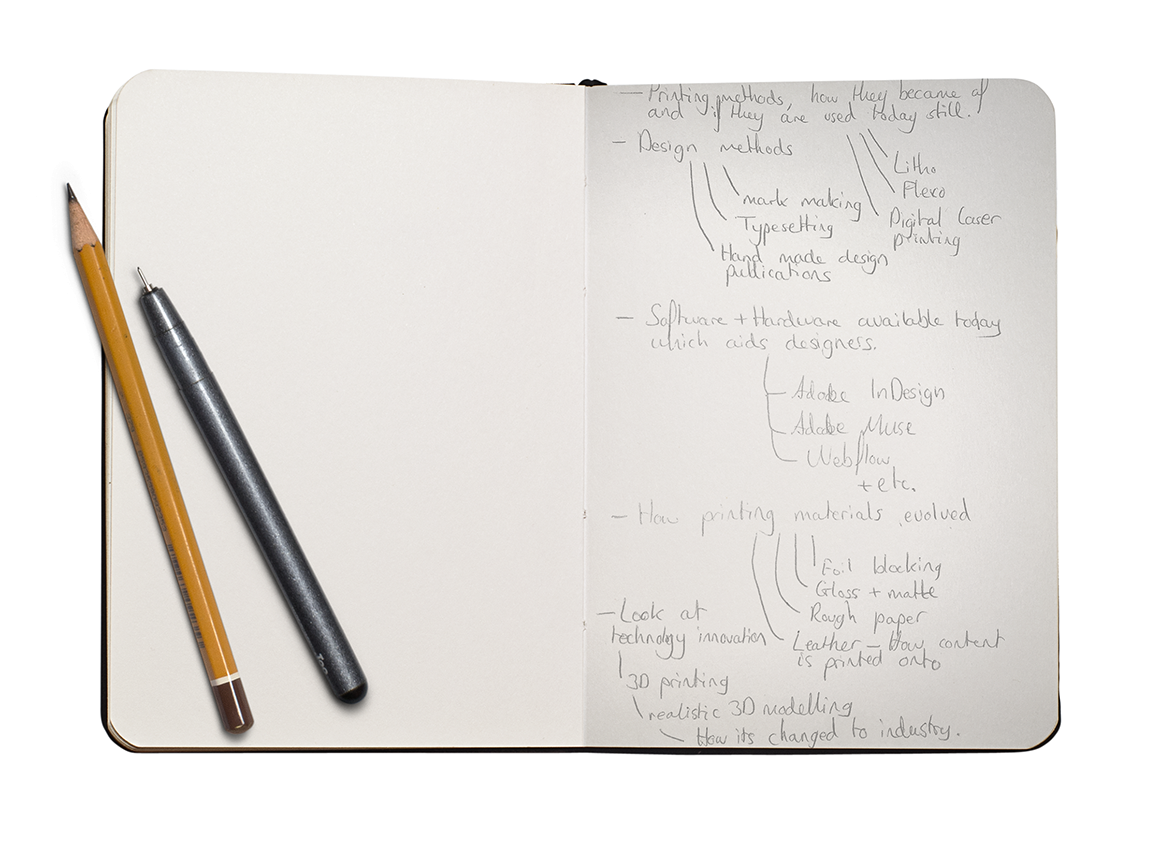 — Printing methods, how they became of
and if they are used today still.
Litho
Flexo
Digital laser
printing
— Design methods
mark making
Typesetting
Hand made design
publications
— Software + Hardware available today
which aids designers.
Adobe InDesign
Adobe Muse
Webflow
+ etc.
— How printing materials evolved
Foil blocking
Gloss + matte
Rough paper
Leather — How content
is printed onto
— Look at
technology innovation
3D printing
realistic 3D modelling
How its changed to industry.